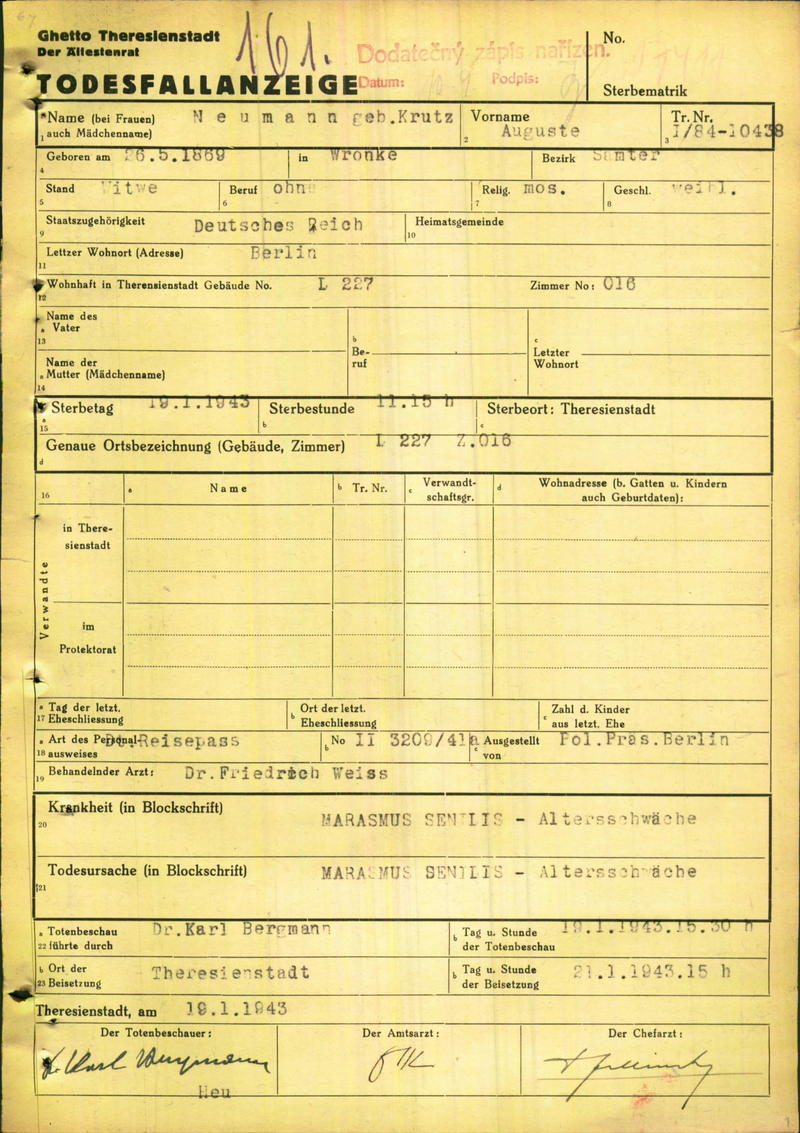 Ghetto Theresienstadt
Der Ältestenrat
161.
Dodatečný zápis nařízen.
Datum: Podpis:
TODESFALLANZEIGE
No.
Sterbematrik
*Name (bei Frauen) Neumann geb.Krutz
1 auch Mädchenname)
Vorname
2 Auguste
Tr. Nr.
3 I/84-10438
Geboren am 26.5.1869 in Wronke Bezirk Samter
4
Stand Witwe Beruf ohne Relig. mos. Geschl. weibl.
5 6 7 8
Staatszugehörigkeit Deutsches Reich Heimatsgemeinde
9 10
Lettzer Wohnort (Adresse) Berlin
11
Wohnhaft in Therensienstadt Gebäude No. L 227 Zimmer No: 016
12
Name des
a Vater
13
b
Be-
ruf
c
Letzter
Wohnort
Name der
a Mutter (Mädchenname)
14
Sterbetag 19.1.1943 Sterbestunde 11.15 h Sterbeort: Theresienstadt
a b c
15
Genaue Ortsbezeichnung (Gebäude, Zimmer) L 227 Z.016
d
16 a Name b Tr. Nr. c Verwandt-
schaftsgr.
d Wohnadresse (b. Gatten u. Kindern
auch Geburtdaten):
Verwandte
in There-
sienstadt
im
Protektorat
a Tag der letzt.
17 Eheschliessung
b Ort der letzt.
Eheschliessung
c Zahl d. Kinder
aus letzt. Ehe
a Art des Personal- Reisepass
18 ausweises
b No II 3209/41
c Ausgestellt Pol.Präs.Berlin
von
Behandelnder Arzt: Dr.Friedrich Weiss
19
Krankheit (in Blockschrift) MARASMUS SENILIS - Altersschwäche
20
Todesursache (in Blockschrift) MARASMUS SENILIS - Altersschwäche
21
a Totenbeschau Dr.Karl Bergmann
22 führte durch
b Tag u. Stunde 19.1.1943.15.30 h
der Totenbeschau
b Ort der Theresienstadt
23 Beisetzung
b Tag u. Stunde 21.1.1943.15 h
der Beisetzung
Theresienstadt, am 19.1.1943
Der Totenbeschauer: Der Amtsarzt: Der Chefarzt:
Dr. Karl Bergmann
Heu